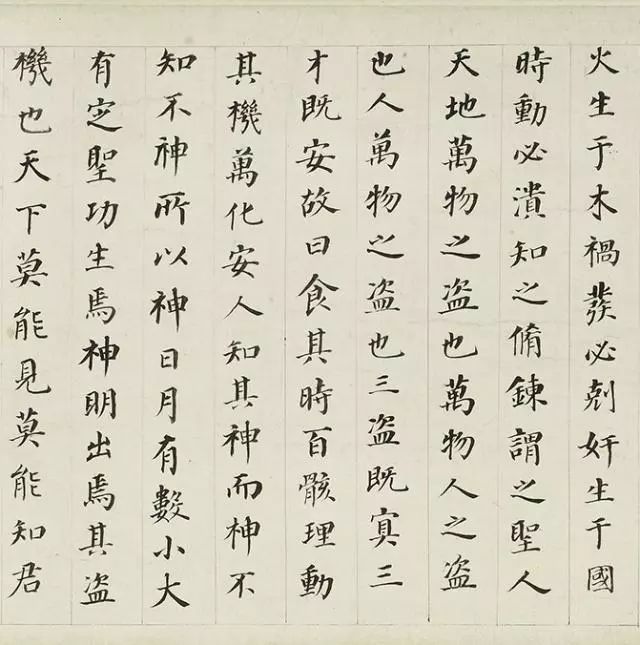 火生于木禍發必剋奸生于國
時動必潰知之脩鍊謂之聖人
天地萬物之盗也萬物人之盗
也人萬物之盗也三盗既㝠三
才既安故曰食其時百骸理動
其機萬化安人知其神而神不
知不神所以神日月有數小大
有定聖功生焉神明出焉其盗
機也天下莫能見莫能知君